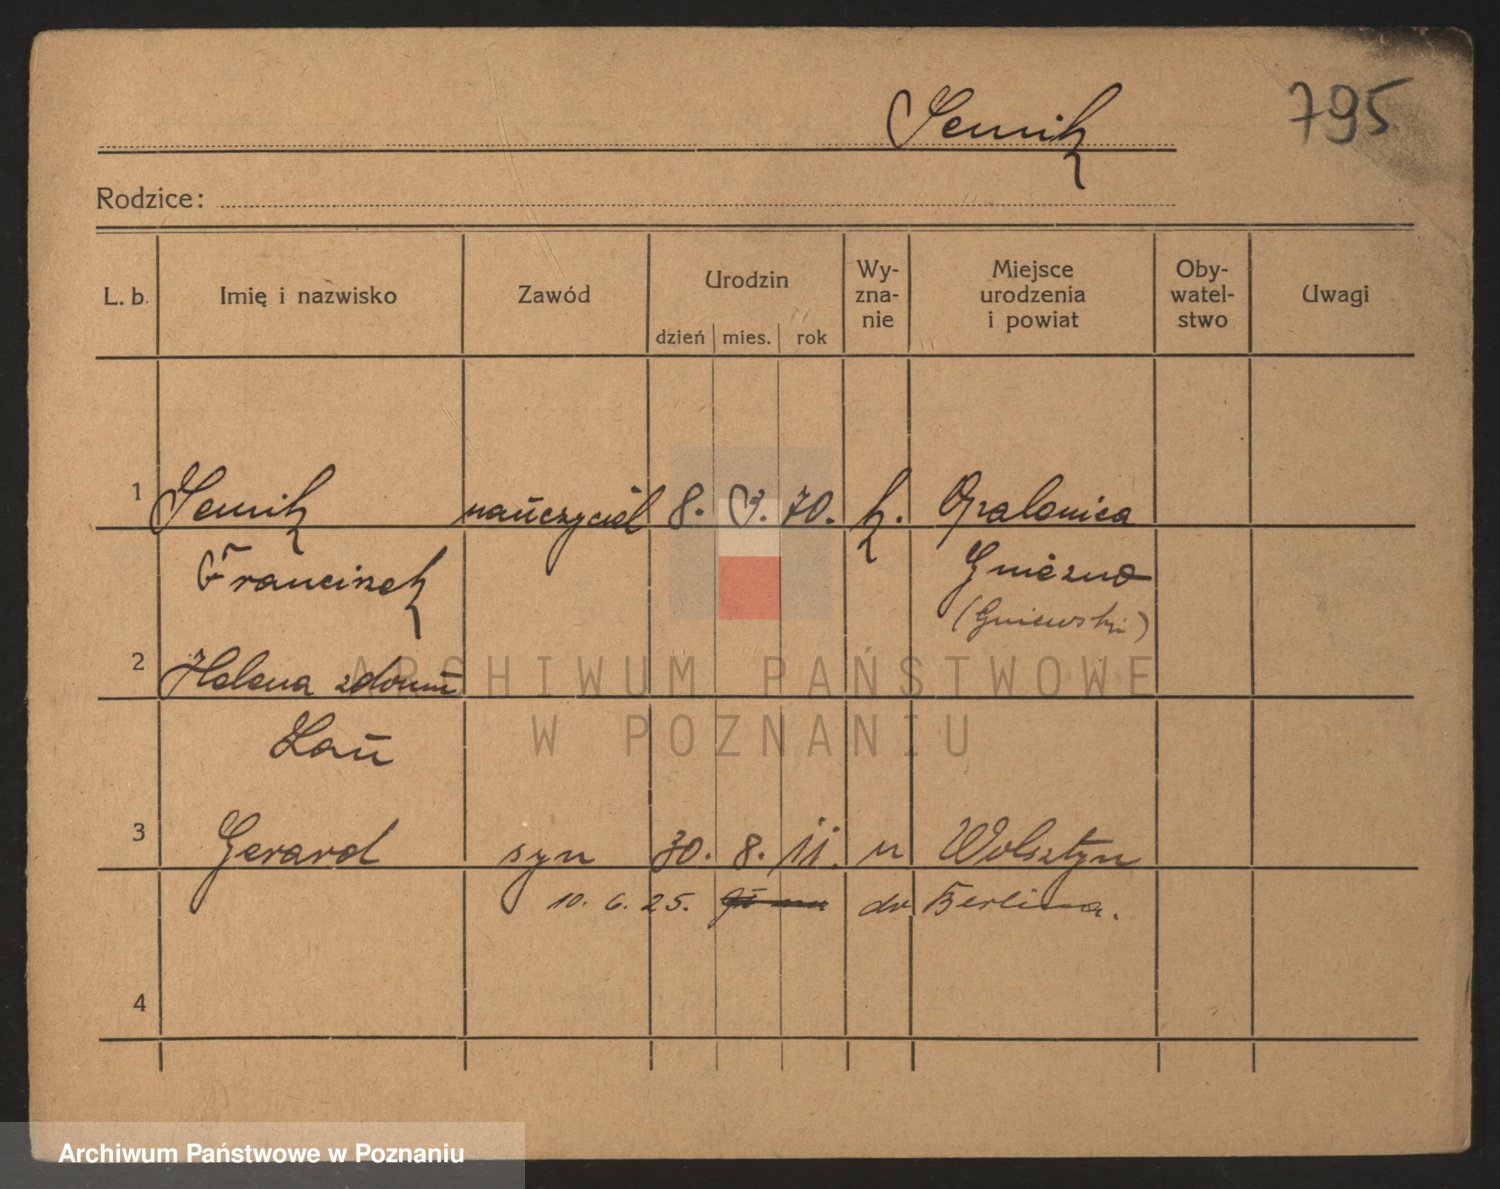 Semik 795
Rodzice:
L. b. Imię i nazwisko Zawód Urodzin dzień mies. rok Wy-zna-nie Miejsce urodzenia i powiat Oby-watel-stwo Uwagi
1 Semik nauczyciel 8. 3. 70. k. Opalenica
Franciszek Gniezno
(Gniewski)
2 Helena z domu
Lau
3 Gerard syn 30. 8. 11. " Wolsztyn
10. 6. 25. do Berlina.
4
ARCHIWUM PAŃSTWOWE
W POZNANIU
Archiwum Państwowe w Poznaniu